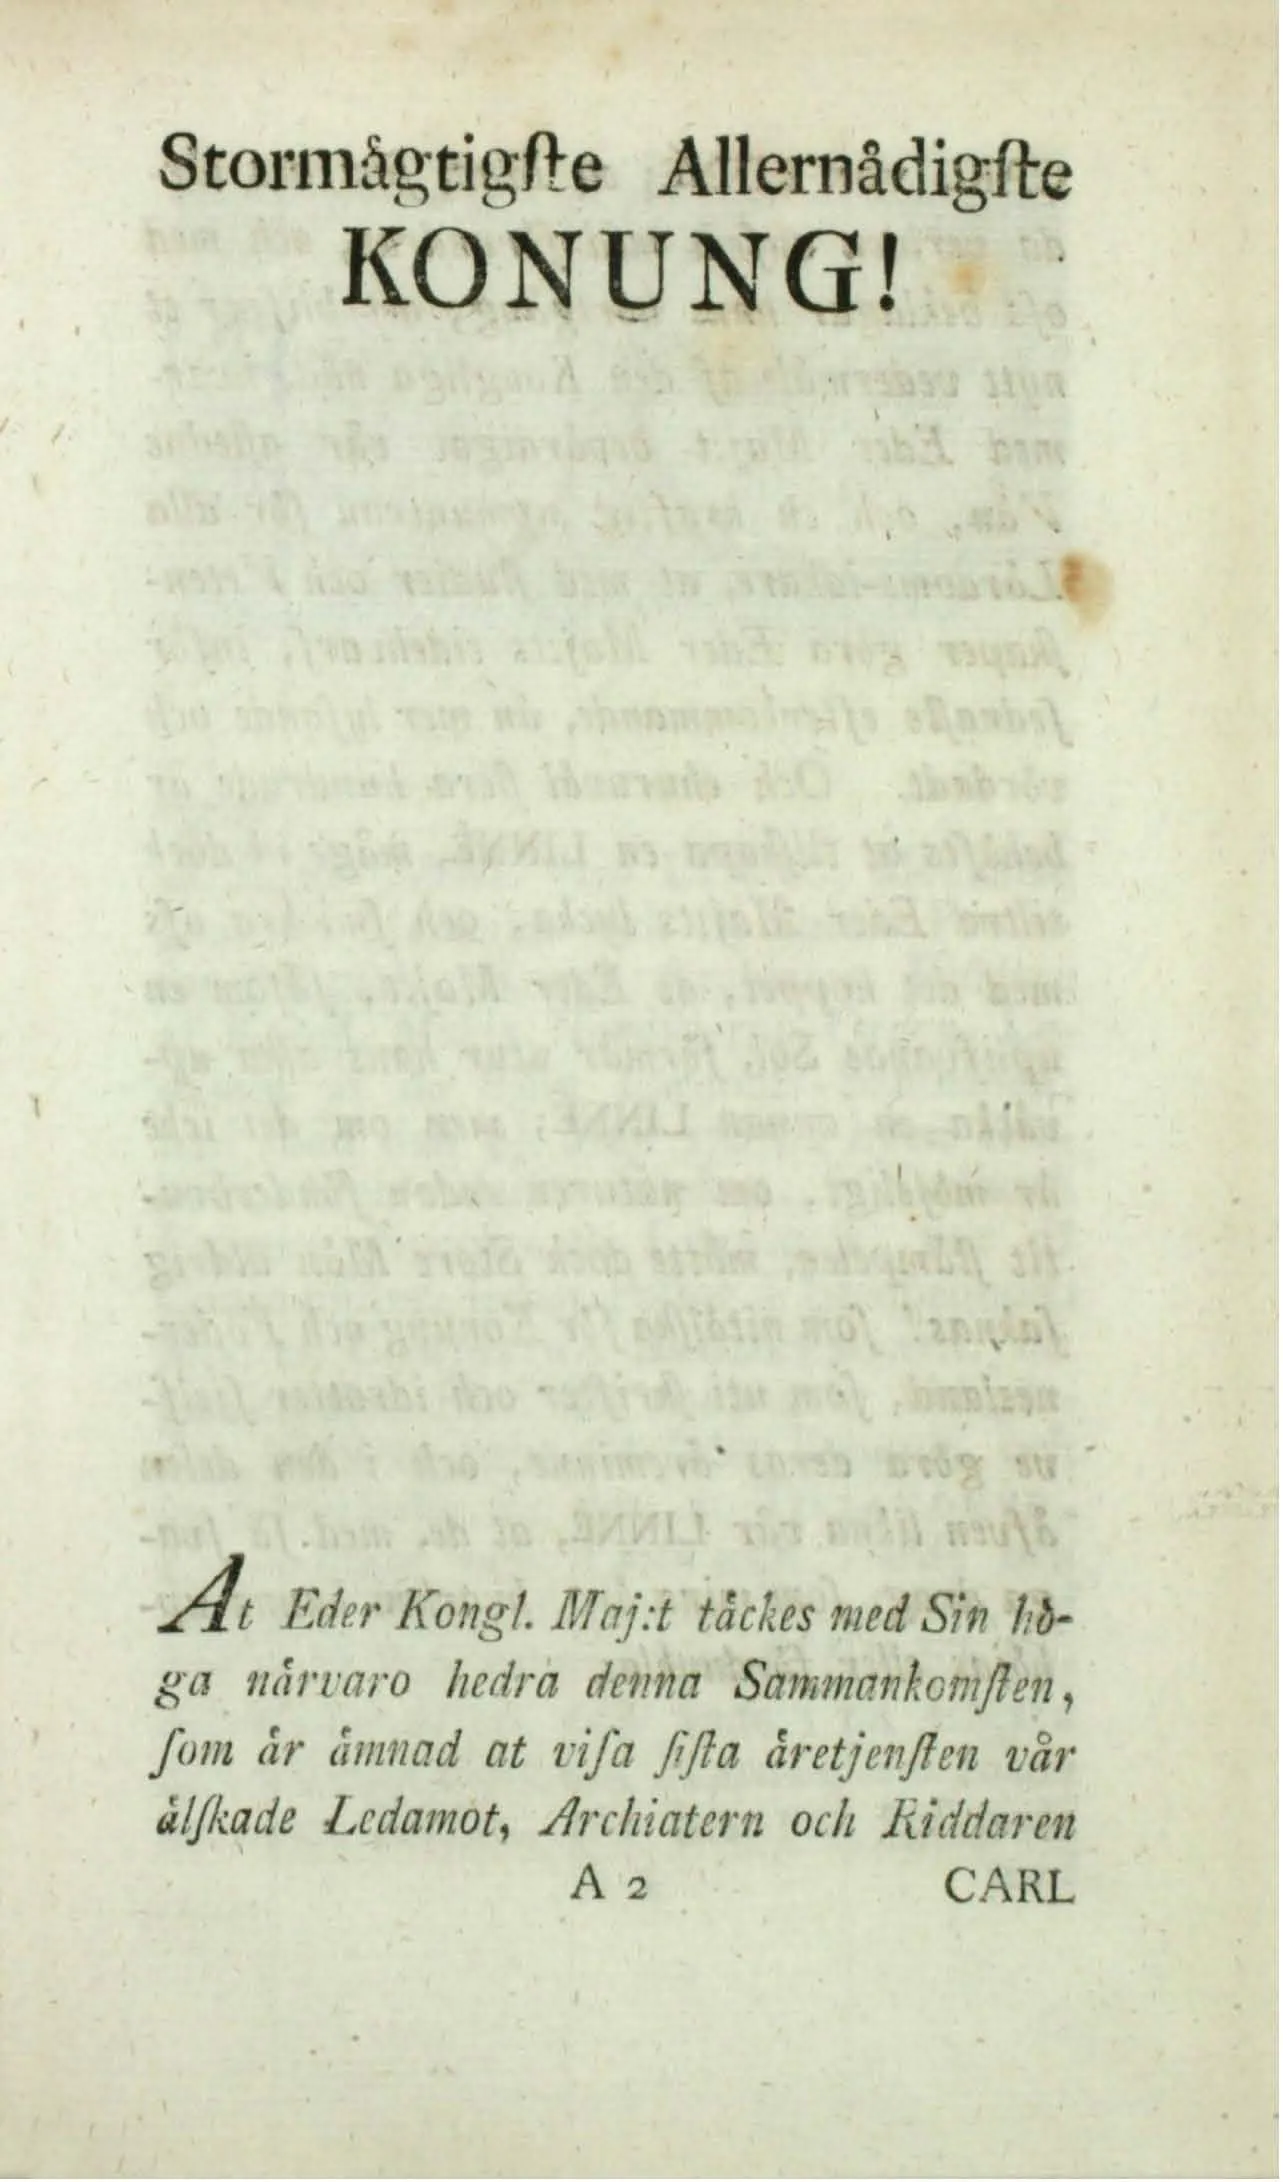 Stormågtigſte Allernådigſte
KONUNG!
At Eder Kongl. Maj:t tåckes med Sin hö-
ga nårvaro hedra denna Sammankomſten,
ſom år åmnad at viſa ſiſta åretjenſten vår
ålſkade Ledamot, Archiatern och Riddaren
A 2 CARL